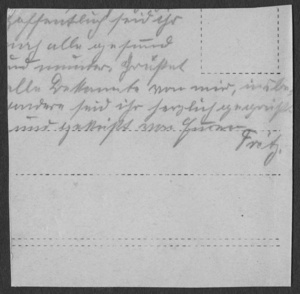 hoffentlich seid ihr
noch alle gesund
und munter. Grüßet
alle Bekannte von mir, insbe-
sondere seid ihr herzlich gegrüßt
und geküßt von Eurem
Fritz.